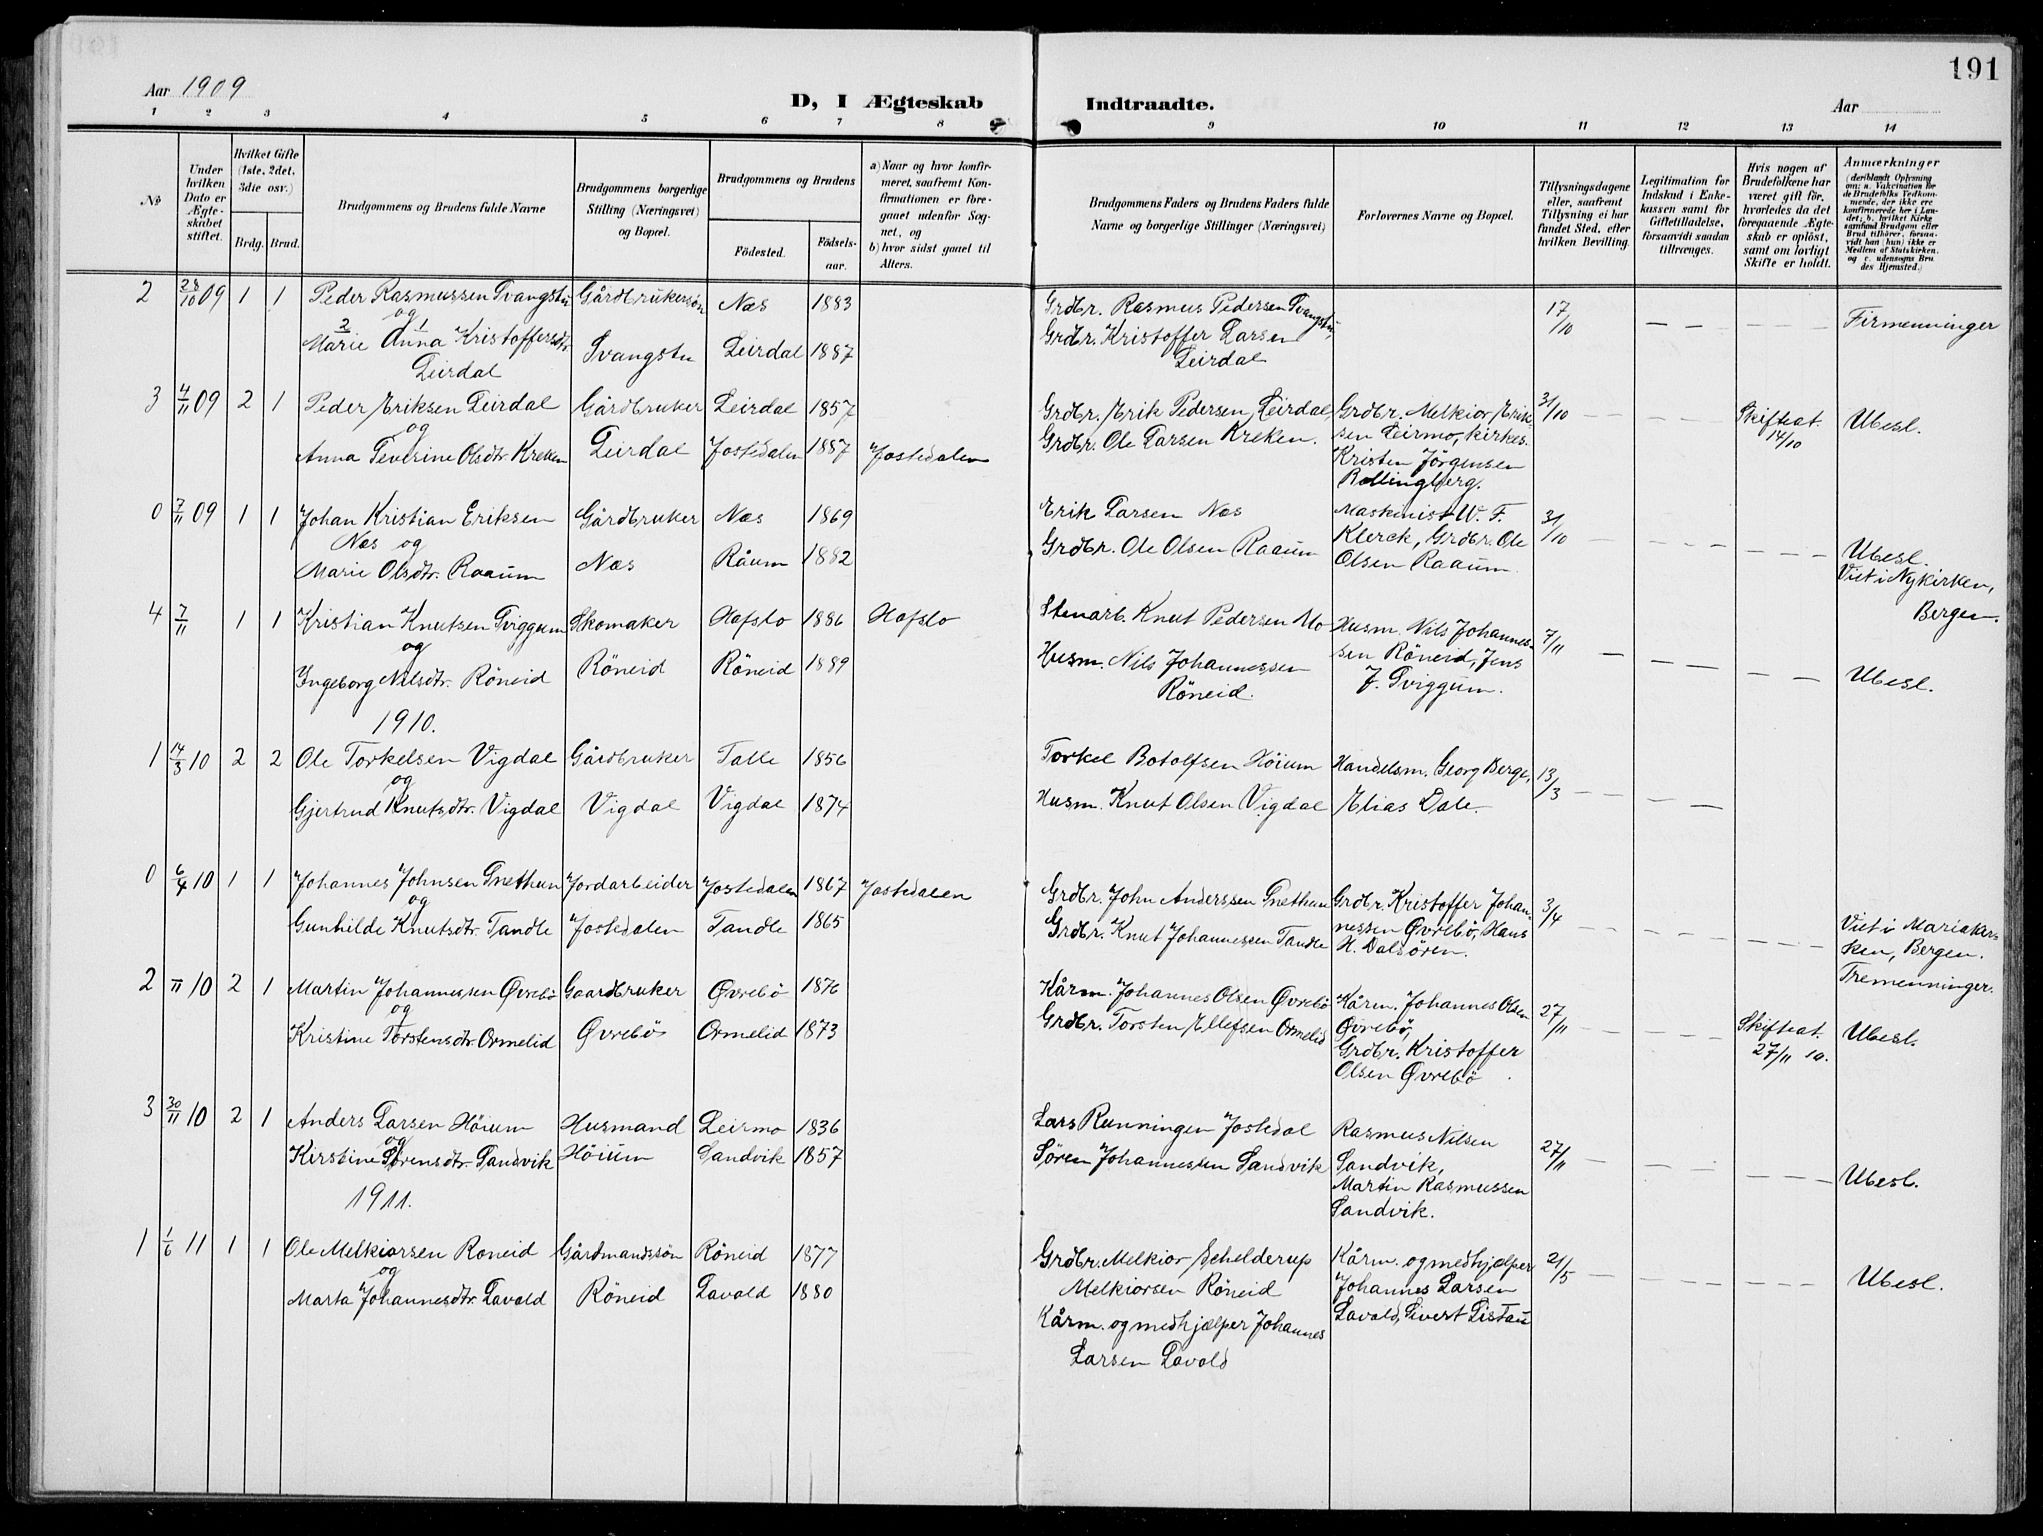 191
Aar 1909
D, I Ægteskab Indtraadte.
Aar
1 2 3 4 5 6 7 8 9 10 11 12 13 14
No
Under hvilken Dato er Ægteskabet stiftet.
Hvilket Gifte (1ste, 2det, 3die osv.)
Brdg. Brud.
Brudgommens og Brudens fulde Navne
Brudgommens borgerlige Stilling (Næringsvei) og Bopæl.
Brudgommens og Brudens
Fødested.
Fødselsaar.
a) Naar og hvor konfirmeret, saafremt Konfirmationen er foregaaet udenfor Sognet, og
b) hvor sidst gaaet til Alters.
Brudgommens Faders og Brudens Faders fulde Navne og borgerlige Stillinger (Næringsvei)
Forlovernes Navne og Bopæl.
Tillysningsdagene eller, saafremt Tillysning ei har fundet Sted, efter hvilken Bevilling.
Legitimation for Indskud i Enkekassen samt for Giftetilladelse, forsaavidt saadan tiltrænges.
Hvis nogen af Brudefolkene har været gift før, hvorledes da det foregaaende Ægteskab er opløst, samt om lovligt Skifte er holdt.
Anmærkninger (deriblandt Oplysning om: a. Vakcination for de Brudefolks Vedkommende, der ikke ere konfirmerede her i Landet; b. hvilket Kirkesamfund Brudgom eller Brud tilhører, forsaavidt han (hun) ikke er Medlem af Statskirken, og c. udensogns Brudes Hjemsted.)
2 28/10 09 1 1 Peder Rasmussen Svangstu Gårdbrukersøn Næs 1883 Grdbr. Rasmus Pedersen Svangstu, 17/10 — — — — Firmenninger
og
2 1
Marie Anna Kristoffersdtr. Svangstu Leirdal 1887 Grdbr. Kristoffer Larsen
Leirdal Leirdal
3 4/11 09 2 1 Peder Eriksen Leirdal Gårdbruker Leirdal 1857 Grdbr. Erik Pedersen, Leirdal, Grdbr. Melkior Erik- 31/10 — — — — Skifteat. Ubesl.
og sen Leirmo, kirkes. 14/10
Anna Severine Olsdtr. Kreken Leirdal Jostedalen 1887 Jostedalen Grdbr. Ole Larsen Kreken. Kristen Jörgensen
Bollingberg.
0 7/11 09 1 1 Johan Kristian Eriksen Gårdbruker Næs 1869 Erik Larsen Næs Maskinist W. F. 31/10
Næs og Klerck, Grdbr. Ole — — — — — — Ubesl.
Marie Olsdtr. Raaum Næs Råum 1882 Grdbr. Ole Olsen Raaum Olsen Raaum. Viet i Nykirken,
Bergen.
4 7/11 1 1 Kristian Knutsen Sviggum Skomaker Hafslo 1886 Hafslo Stenarb. Knut Pedersen Mo Husm. Nils Johannes- 7/11
og sen Röneid, Jens — — —
Ingeborg Nilsdtr. Röneid Röneid Röneid 1889 Husm. Nils Johannessen J. Sviggum. — — Ubesl.
Röneid.
1910.
1 14/3 10 2 2 Ole Torkelsen Vigdal Gårdbruker Talle 1856 Torkel Botolfsen Höium Handelsm. Georg Berge, 13/3
og
Gjertrud Knutsdtr. Vigdal Vigdal Vigdal 1874 Husm. Knut Olsen Vigdal Elias Dale. — — — —
0 6/4 10 1 1 Johannes Johnsen Snethun Jordarbeider Jostedalen 1867 Jostedalen Grdbr. John Anderssen Snethun Grdbr. Kristoffer Johan- 3/4
og nessen Øvrebö, Hans Viet i Mariakir-
Gunhilde Knutsdtr. Tandle Jostedalen Tandle 1865 Grdbr. Knut Johannessen Tandle H. Dalsören. — — — — — — ken, Bergen.
Tremenninger.
2 11 10 2 1 Martin Johannessen Øvrebö Gaardbruker Øvrebö 1876 Kårm. Johannes Olsen Øvrebö Kårm. Johannes Olsen 27/11
og Øvrebö, — — — — Skifteat. Ubesl.
Kristine Torstensdtr. Ormelid Øvrebö Ormelid 1873 Grdbr. Torsten Ellefsen Ormelid Grdbr. Kristoffer 27/11 10.
Olsen Øvrebö
3 30/11 10 2 1 Anders Larsen Höium Husmand Leirmo 1836 Lars Ruuningen Jostedal Rasmus Nilsen 27/11
og Sandvik,
Kirstine Sörensdtr. Sandvik Höium Sandvik 1857 Sören Johannessen Sandvik Martin Rasmussen — — — — — — — Ubesl.
Sandvik.
1911.
1 1/6 11 1 1 Ole Melkiorsen Roneid Gårdmandssön Röneid 1877 Grdbr. Melkior Schelderup Kårm. og medhjelper 21/5
og Melkiorsen Röneid Johannes Larsen — — — — — — Ubesl.
Marta Johannesdtr. Lavold Röneid Lavold 1880 Kårm. og medhjælper Johannes Lavold, Sivert Listau
Larsen Lavold